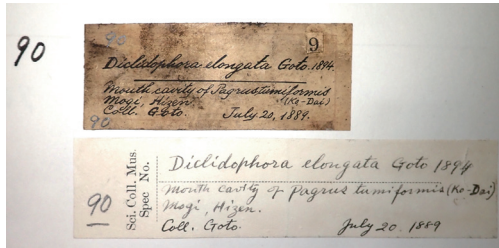 90
90
9
Diclidophora elongata Goto. 1894.
Mouth cavity of Pagrus tumiformis
(Ko-Dai)
Mogi, Hizen.
Coll. Goto. July 20, 1889.
90
Sci. Coll. Mus.
Spec No.
90
Diclidophora elongata Goto 1894
Mouth Cavity of Pagrus tumiformis (Ko-Dai)
Mogi, Hizen.
Coll. Goto. July 20. 1889